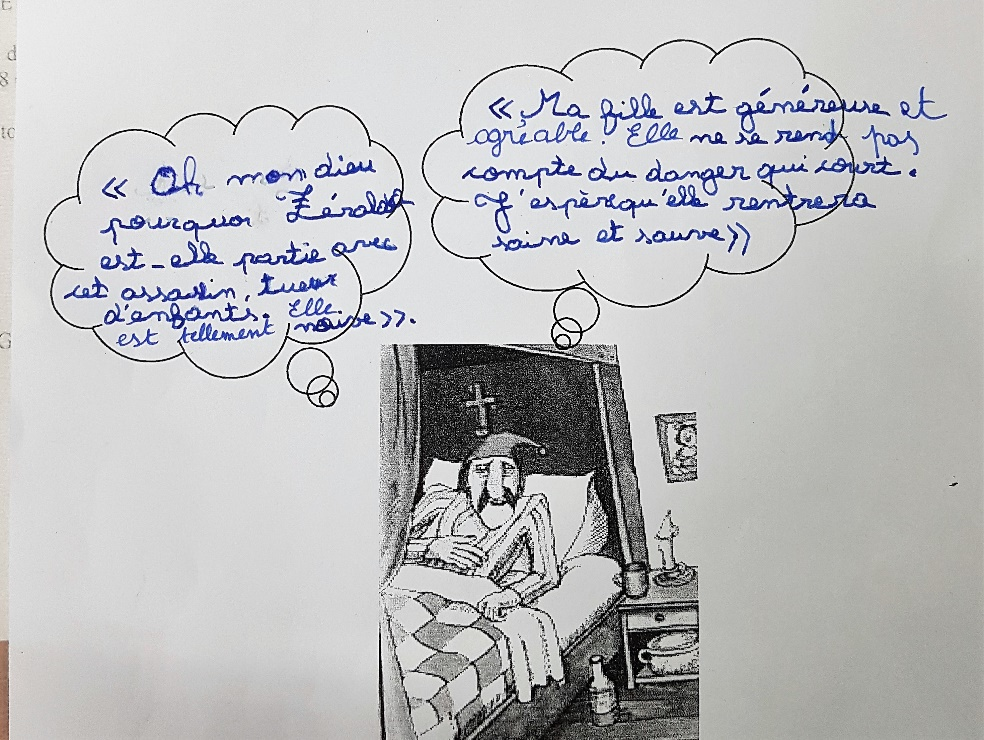 « Oh mon dieu
pourquoi Zéralda
est-elle partie avec
cet assassin, tueur
d'enfants. Elle
est tellement naïve ».
« Ma fille est généreuse et
agréable. Elle ne se rend pas
compte du danger qui court.
J'espère qu'elle rentrera
saine et sauve »